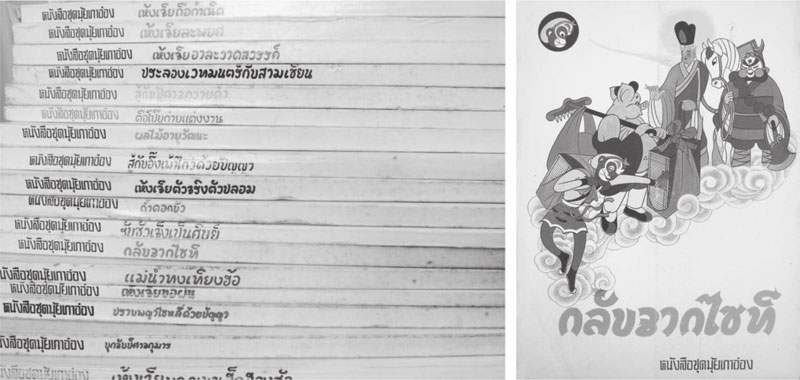 หนังสือชุดมุ้ยเกาอ่อง เห้งเจียถือกำเนิด
หนังสือชุดมุ้ยเกาอ่อง เห้งเจียละพยศ
หนังสือชุดมุ้ยเกาอ่อง เห้งเจียอาละวาดสวรรค์
หนังสือชุดมุ้ยเกาอ่อง ประลองเวทมนตร์กับสามเซียน
หนังสือชุดมุ้ยเกาอ่อง
หนังสือชุดมุ้ยเกาอ่อง ตือโป๊ยก่ายแต่งงาน
หนังสือชุดมุ้ยเกาอ่อง ผลไม้อายุวัฒนะ
หนังสือชุดมุ้ยเกาอ่อง ด้วยปัญญา
หนังสือชุดมุ้ยเกาอ่อง เห้งเจียตัวจริงตัวปลอม
หนังสือชุดมุ้ยเกาอ่อง ถ้ำดอกบัว
หนังสือชุดมุ้ยเกาอ่อง รับซัวเจ๋งเป็นศิษย์
หนังสือชุดมุ้ยเกาอ่อง กลับจากไซที
หนังสือชุดมุ้ยเกาอ่อง แม่น้ำทงเทียงฮ้อ
หนังสือชุดมุ้ยเกาอ่อง เห้งเจียขอฝน
หนังสือชุดมุ้ยเกาอ่อง ด้วยปัญญา
หนังสือชุดมุ้ยเกาอ่อง บุกจับปีศาจกุมาร
หนังสือชุดมุ้ยเกาอ่อง
กลับจากไซที
หนังสือชุดมุ้ยเกาอ่อง